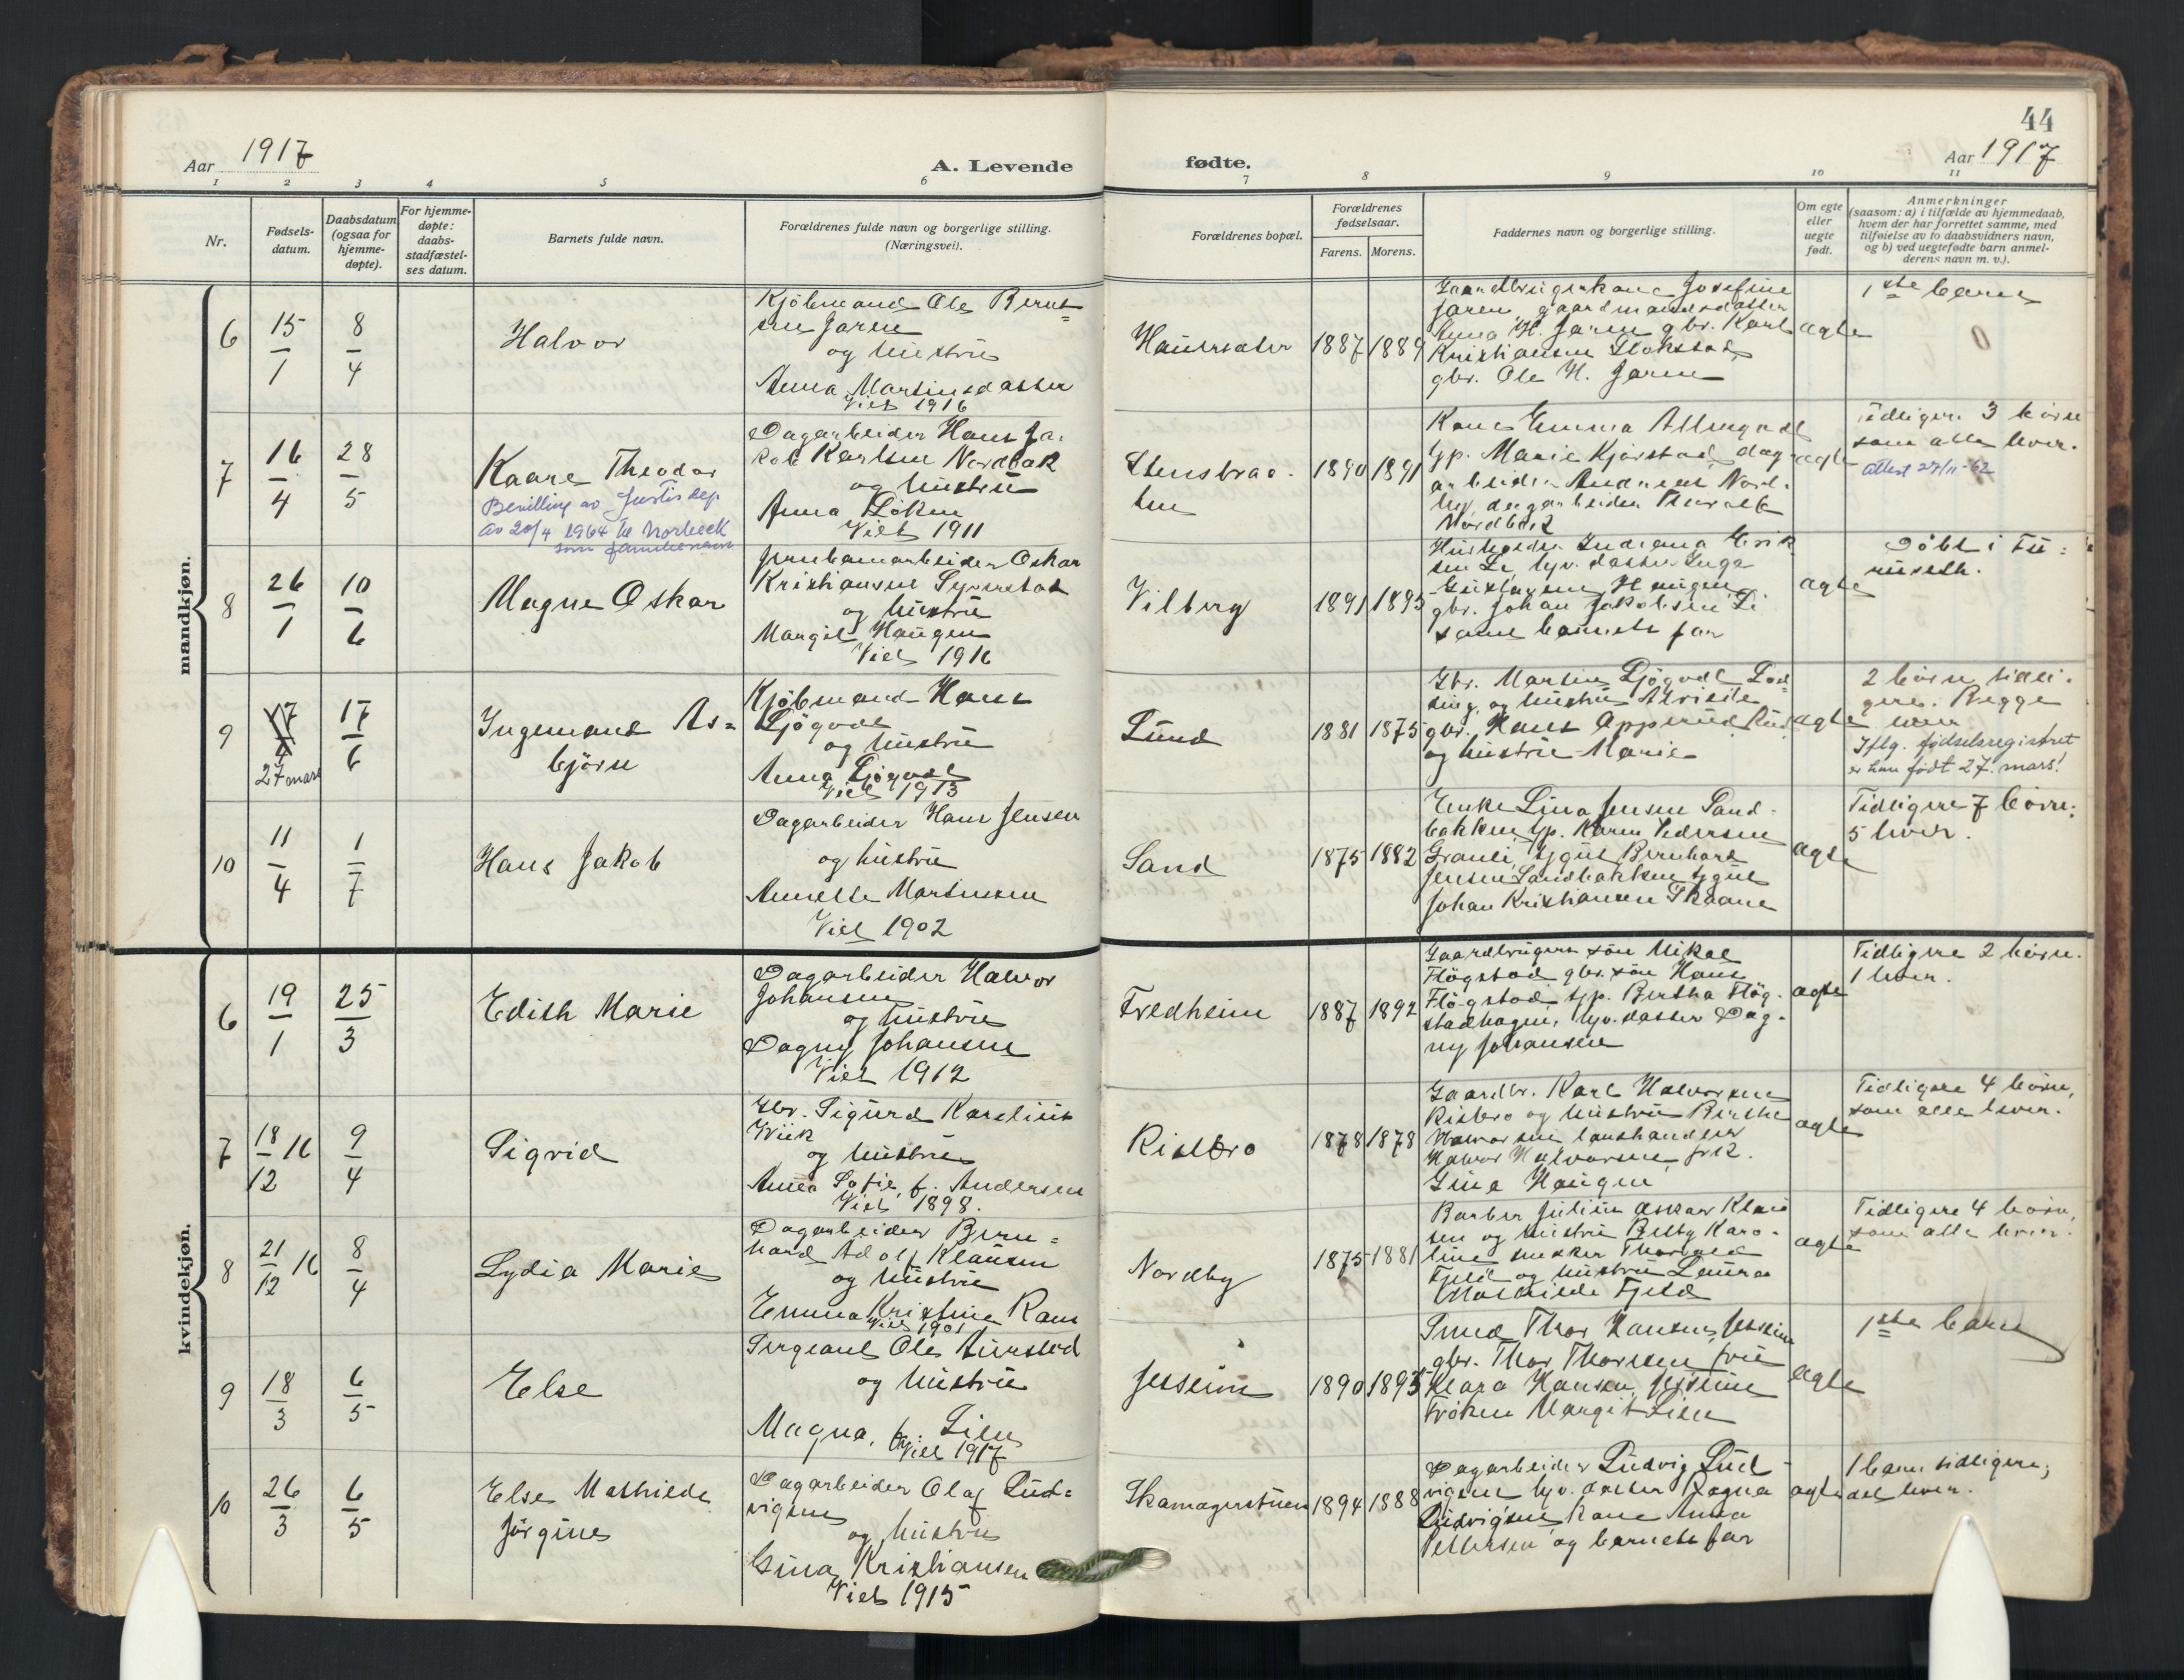 44
Aar 1917
A. Levende
fødte.
Aar 1917
1 2 3 4 5 6 7 8 9 10 11
Nr.
Fødsels-
datum.
Daabsdatum
(ogsaa for
hjemme-
døpte).
For hjemme-
døpte:
daabs-
stadfæstel-
ses datum.
Barnets fulde navn.
Forældrenes fulde navn og borgerlige stilling.
(Næringsvei).
Forældrenes bopæl.
Forældrenes
fødselsaar.
Farens. Morens.
Faddernes navn og borgerlige stilling.
Om egte
eller
uegte
født.
Anmerkninger
(saasom: a) i tilfælde av hjemmedaab,
hvem der har forrettet samme, med
tilføielse av to daabsvidners navn,
og b) ved uegtefødte barn anmel-
derens navn m. v.).
mandkjøn.
6
15/1
8/4
Halvor
Kjöbmand Ole Bernt
sen Jaren
og hustru
Anna Martinsdatter
Viet 1916
Hauersæter
1887 1889
Gaardbrugerkone Josefine
Jaren, gaardmandsdatter
Anna H. Jaren gbr. Karl
Kristiansen
gbr. Ole H. Jaren
ægte
1ste barn
7
16/4
28/5
Kaare Theodor
Bevilling av Justisdep.
av 20/4 1964 til Norbeck
som familienavn
Dagarbeider Hans Ja-
kob Karlsen Nordbak
og hustru
Anna Löken
Viet 1911
Stensbraa-
ten
1890 1891
Kone Emma
tjp. Marie Kjørstad, dag-
arbeider Andreas Nord-
by, dagarbeider
Nordbak
ægte
Tidligere 3 börn
som alle lever.
Attest 27/11-62
8
26/1
10/6
Magne Oskar
Jernbanearbeider Oskar
Kristiansen
og hustru
Margit Haugen
Viet 1916
Vilberg
1891 1895
Indiana Erik
sen Li, hjv. datter Inga
Gustavsen Haugen
gbr. Johan Jakobsen Li
samt barnets far
ægte
Döbt i Fu-
ruseth.
9
17/4
27 mars
17/6
Ingemand As=
björn
Kjöbmand Hans
Sjögvol
og hustru
Anna Sjögvol
Viet 1913
Lund
1881 1875
Gbr. Martin Sjögvol
og hustru
gbr. Hans Opperud
og hustru Marie
ægte
2 börn tidli-
gere. Begge
lever
Iflg. fødselsregistret
er han født 27. mars!
10
11/4
1/7
Hans Jakob
Dagarbeider Hans Jensen
og hustru
Annette Martinsen
Viet 1902
Sand
1875 1882
Enke Lina Jensen Sand-
bakken, tjp. Karen Pedersen
Granli, tjgut Bernhard
Jensen Sandbakken tjgut
Johan Kristiansen Skaane
ægte
Tidligere 7 börn.
5 lever.
kvindekjøn.
6
19/1
25/3
Edith Marie
Dagarbeider Halvor
Johansen
og hustru
Dagny Johansen
Viet 1912
Fredheim
1887 1892
Gaardbrugers sön Mikal
Flögstad gbr. sön Hans
Flögstad tjp. Bertha Flög-
stadhagen, hjv. datter Dag-
ny Johansen
ægte
Tidligere 2 börn.
1 lever.
7
18/12 16
9/4
Sigrid
Gbr. Sigurd Karelius
Wiik
og hustru
Anna Sofie f. Andersen
Viet 1898.
Risebro
1878 1878
Gaardbr. Karl Halvorsen
Risbro og hustru Berthe
Halvorsen landhandler
Halvor Halvorsen frk.
Gina Haugen
ægte
Tidligere 4 börn,
som alle lever.
8
21/12 16
8/4
Lydia Marie
Dagarbeider Bern=
hard Adolf Klausen
og hustru
Emma Kristine Ram
Viet 1901
Nordby
1875 1881
Barber Julius Oskar Klau
sen og hustru Betsy Karo-
line snekker Thorvald
Fjeld og hustru Laura
Mathilde Fjeld
ægte
Tidligere 4 börn,
som alle lever.
9
18/3
6/5
Else
Sergeant Ole Aurstad
og hustru
Magna, f. Lien
Viet 1917
Jesseim
1890 1895
Smed Thor Hansen, Jesseim
gbr. Thor Thoresen frue
Klara Hansen, Jesseim
Fröken Margit Lien
ægte
1ste barn
10
26/3
6/5
Else Mathilde
Jörgine
Dagarbeider Olaf Lud=
vigsen
og hustru
Gina Kristiansen
Viet 1915
Skamagerstuen
1894 1888
Dagarbeider Ludvig Lud-
vigsen hjv. datter Ragna
Ludvigsen, kone Anna
Pettersen og barnets far
ægte
1 barn tidligere,
det lever.